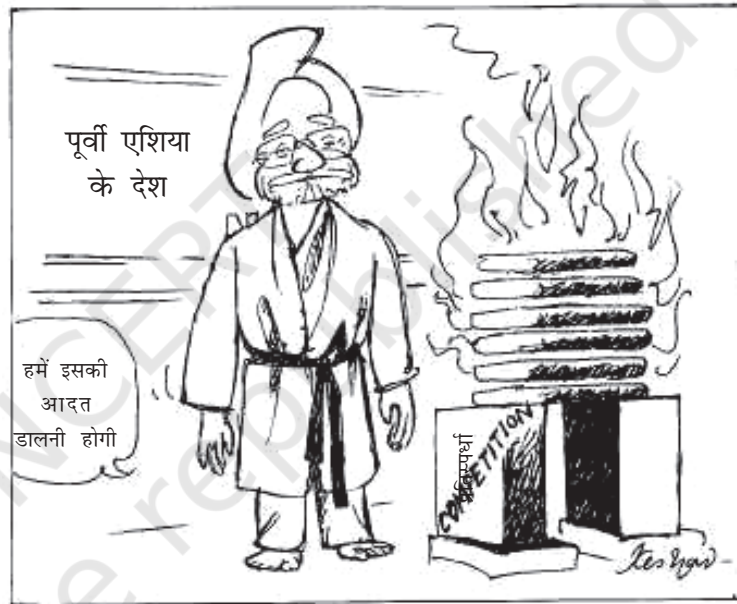 पूर्वी एशिया
के देश
हमें इसकी
आदत
डालनी होगी
प्रतिस्पर्धा
COMPETITION
Keshav
NCERT
be republished